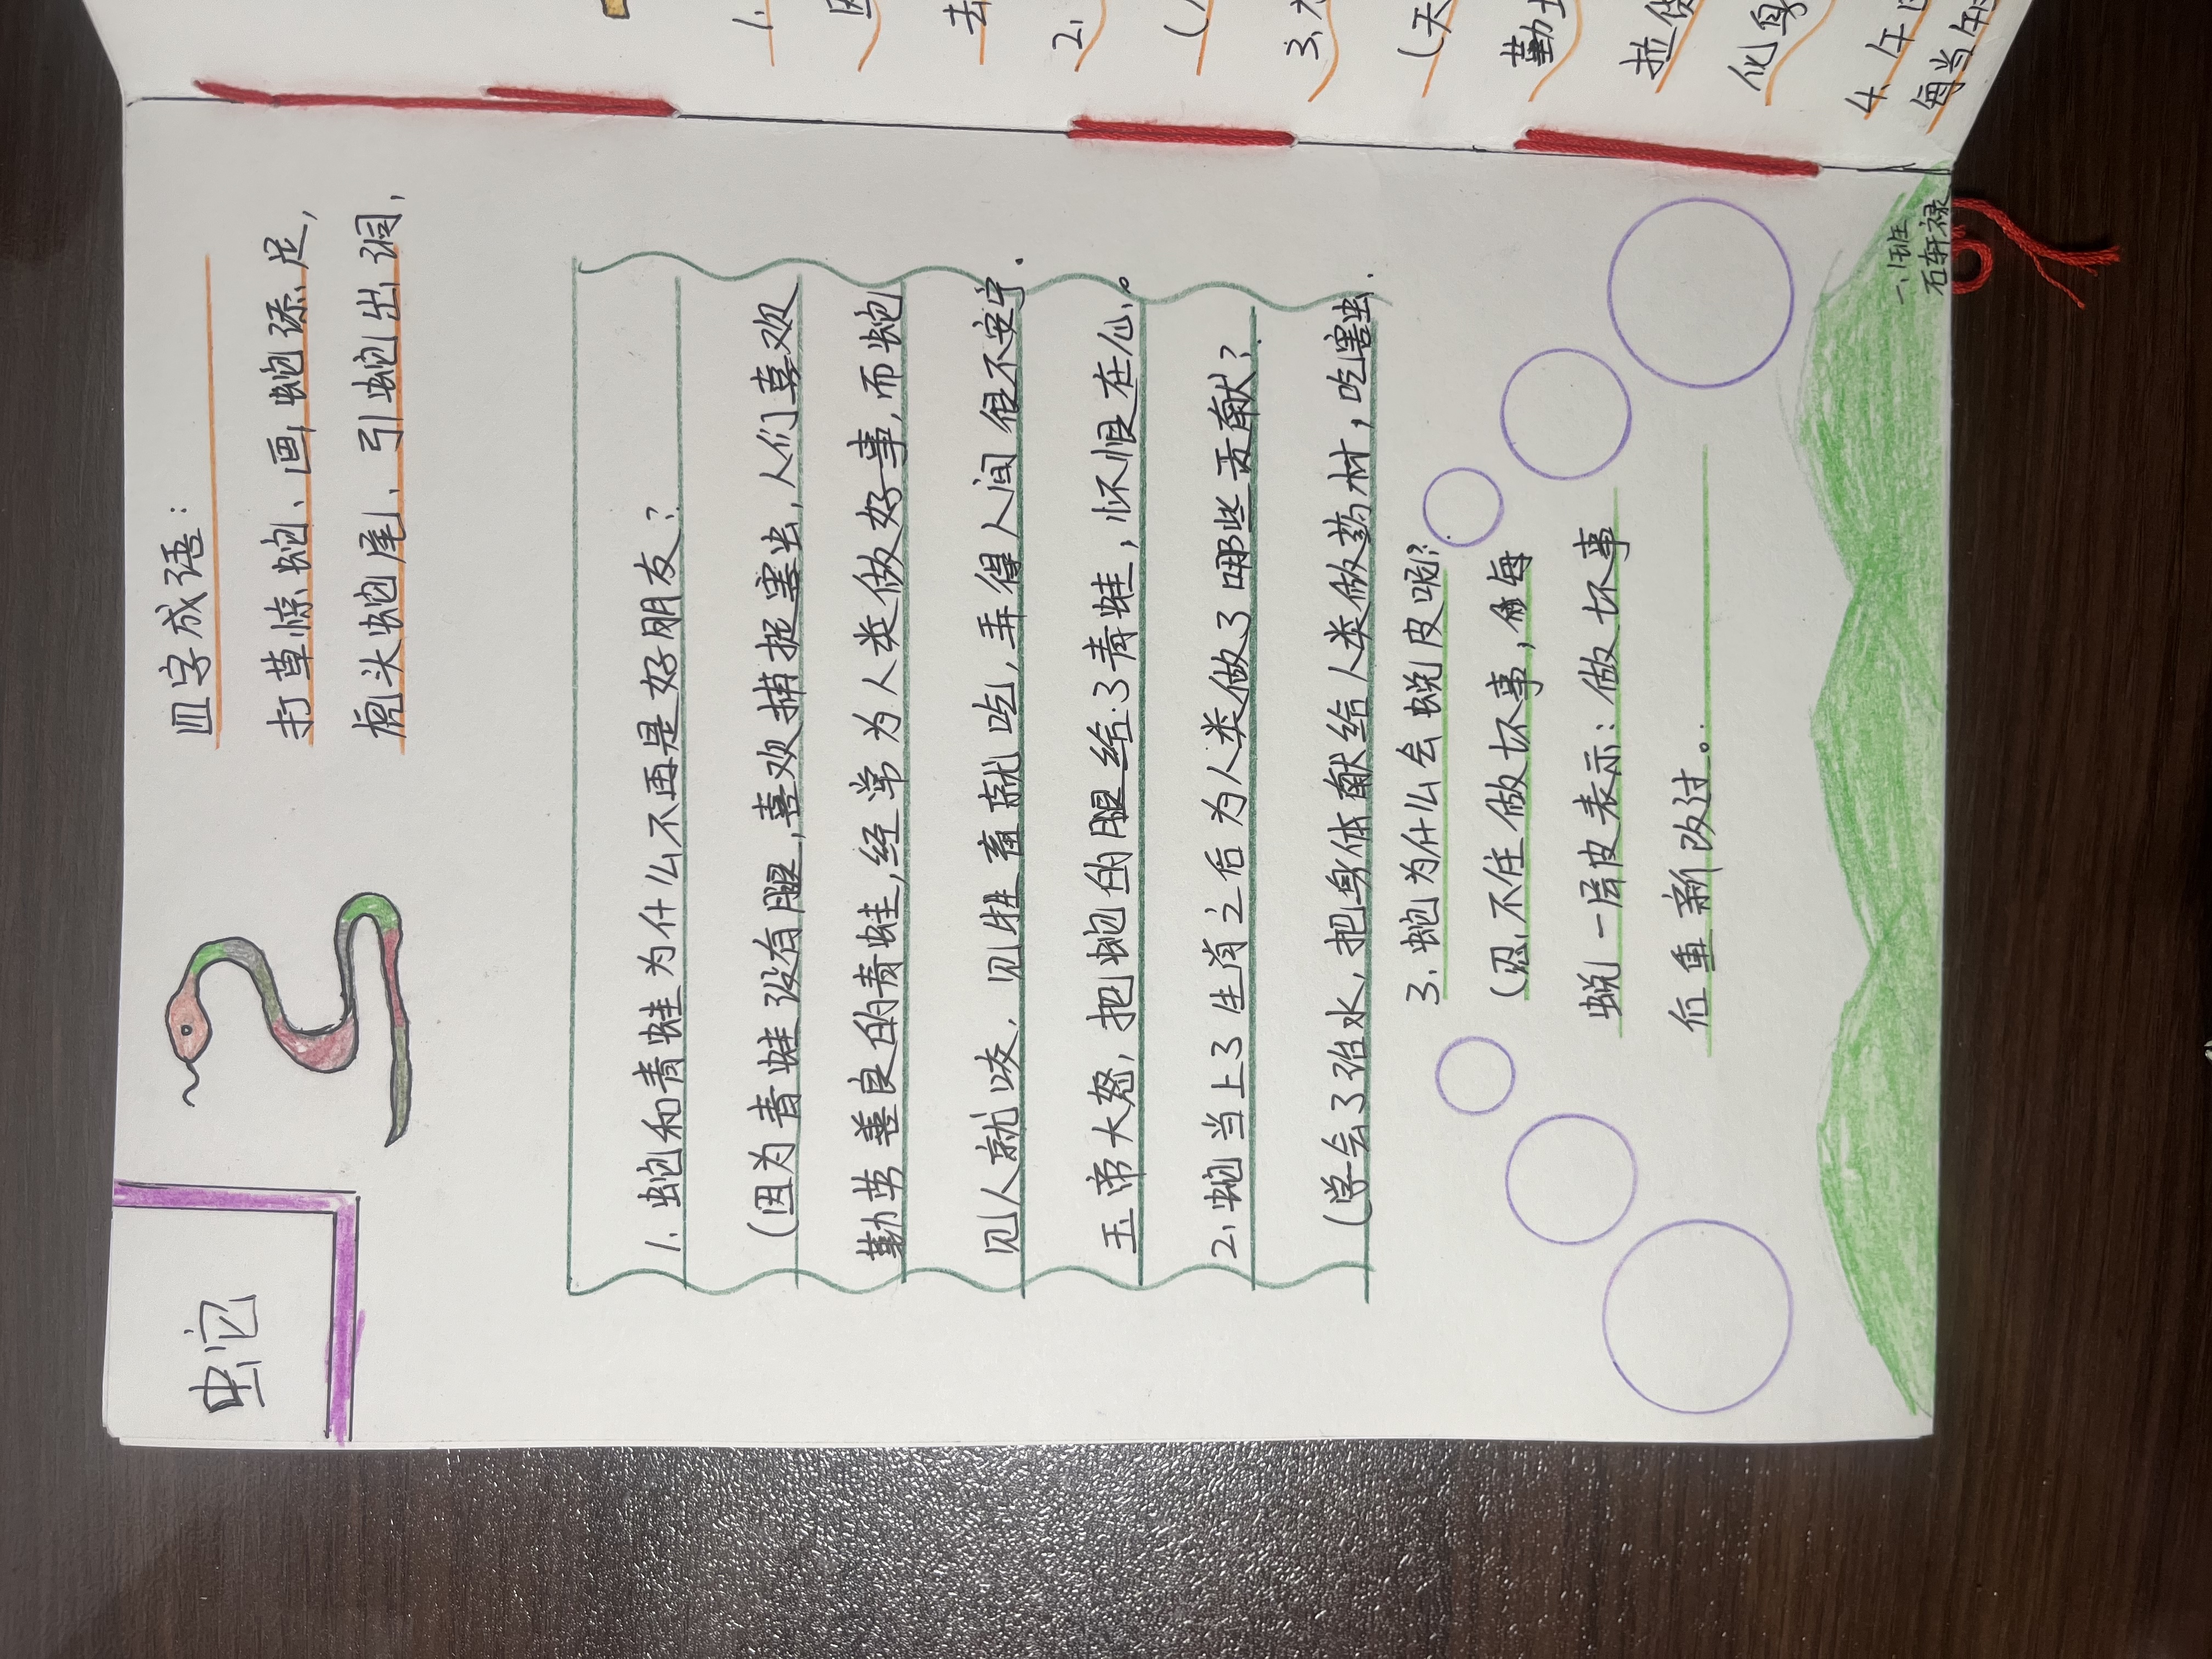 蛇
四字成语：
打草惊蛇、画蛇添足，
虎头蛇尾、引蛇出洞，
1. 蛇和青蛙为什么不再是好朋友？
(因为青蛙没有腿，喜欢捕捉害虫，人们喜欢
勤劳善良的青蛙，经常为人类做好事，而蛇
见人就咬，见牲畜就吃，弄得人间很不安宁.
玉帝大怒，把蛇的腿给了青蛙，怀恨在心。
2. 蛇当上了生肖之后为人类做了哪些贡献？
(学会了治水，把身体献给人类做药材，吃害虫.
3. 蛇为什么会蜕皮呢？
(忍不住做坏事，每
蜕一层皮表示：做坏事
后重新改过。
一、1班
石轩禄
1.
因
去
2.
(
3.
(天
勤
拉
化身
4. 午
每当午时